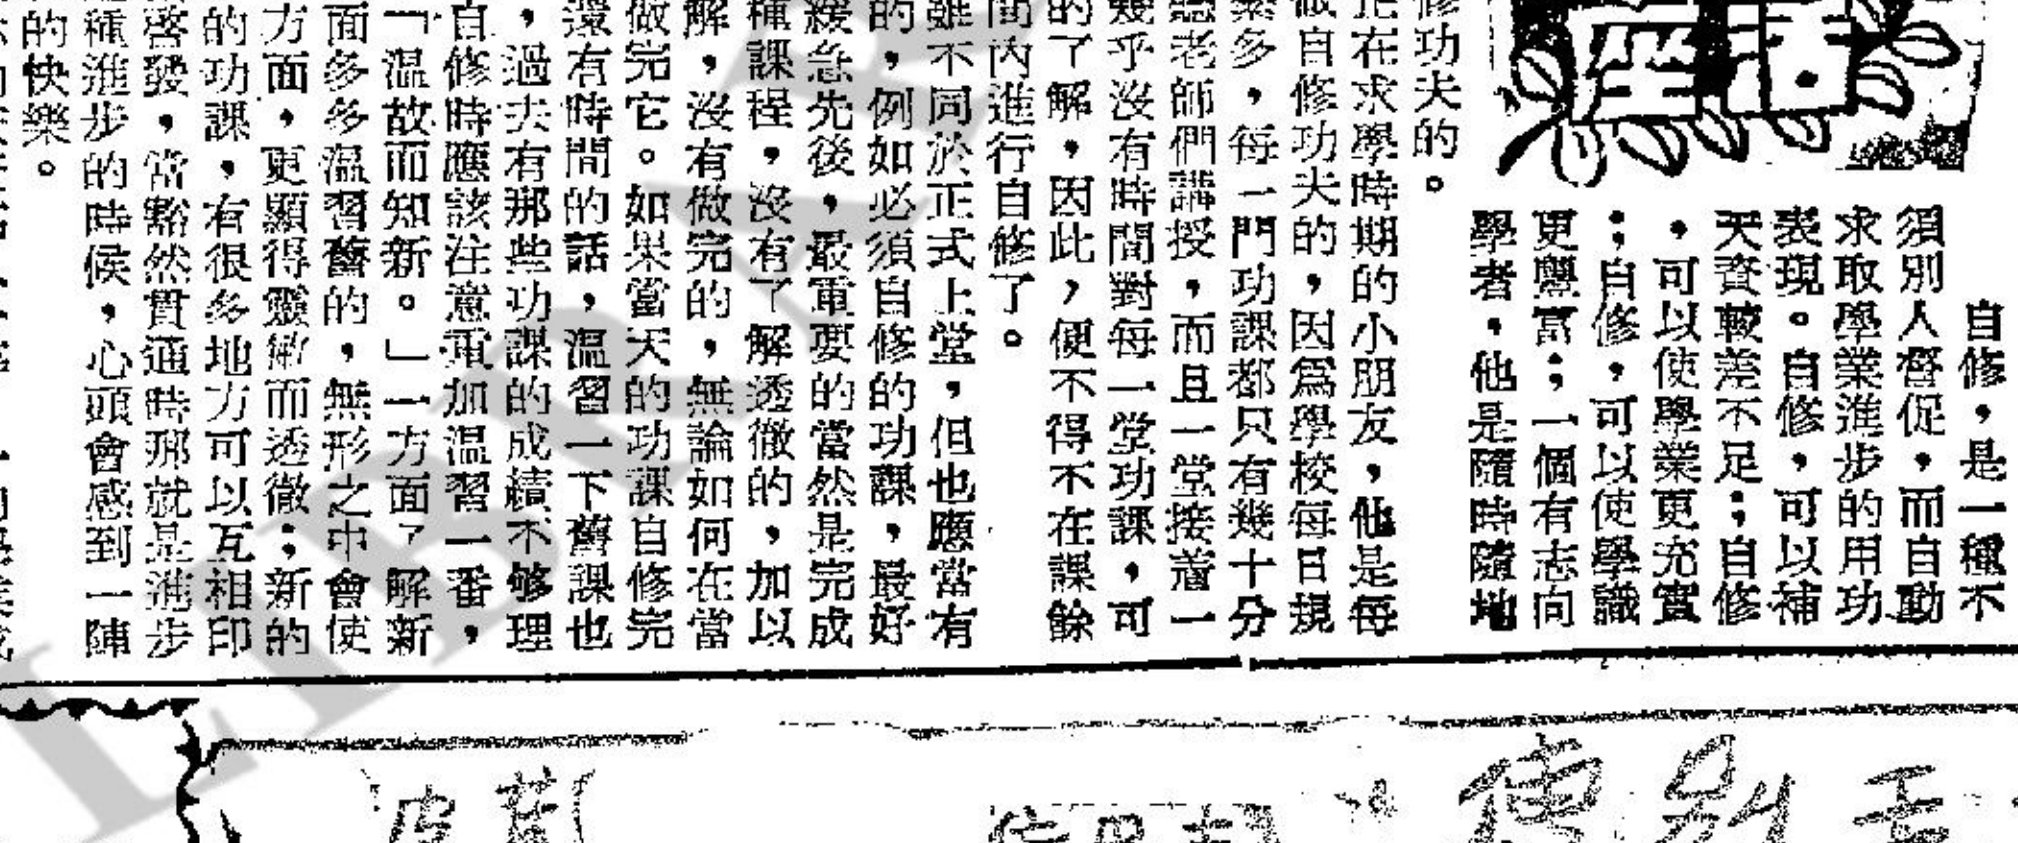 座活
自修，是一種不
須別人督促，而自動
求取學業進步的用功
表現。自修，可以補
天資較差不足；自修
，可以使學業更充實
；自修，可以使學識
更豐富；一個有志向
學者，他是隨時隨地
修功夫的。
正在求學時期的小朋友，他是每
做自修功夫的，因爲學校每日規
繁多，每一門功課都只有幾十分
聽老師們講授，而且一堂接着一
幾乎沒有時間對每一堂功課，可
的了解，因此，便不得不在課餘
間內進行自修了。
雖不同於正式上堂，但也應當有
的，例如必須自修的功課，最好
緩急先後，最重要的當然是完成
種課程，沒有了解透徹的，加以
解，沒有做完的，無論如何在當
做完它。如果當天的功課自修完
還有時間的話，溫習一下舊課也
，過去有那些功課的成績不够理
自修時應該注意重加温習一番，
「溫故而知新。」一方面了解新
面多多溫習舊的，無形之中會使
方面，更顯得靈敏而透徹；新的
的功課，有很多地方可以互相印
啓發，當豁然貫通時那就是進步
種進步的時候，心頭會感到一陣
的快樂。
LIBRAR